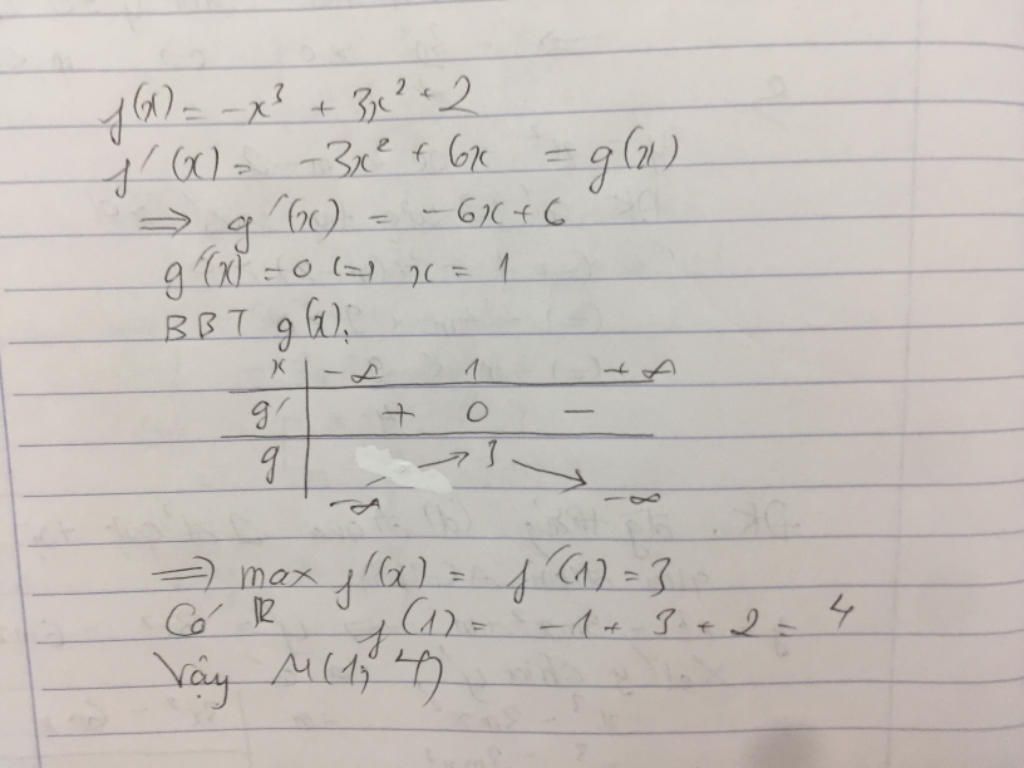 f(x) = -x³ + 3x² + 2
f'(x) = -3x² + 6x = g(x)
⇒ g'(x) = -6x + 6
g'(x) = 0 (=) x = 1
BBT g(x):
x -∞ 1 +∞
g' + 0 -
g 3
-∞ -∞
⇒ max f'(x) = f'(1) = 3
Có ℝ f(1) = -1 + 3 + 2 = 4
Vậy M(1; 4)